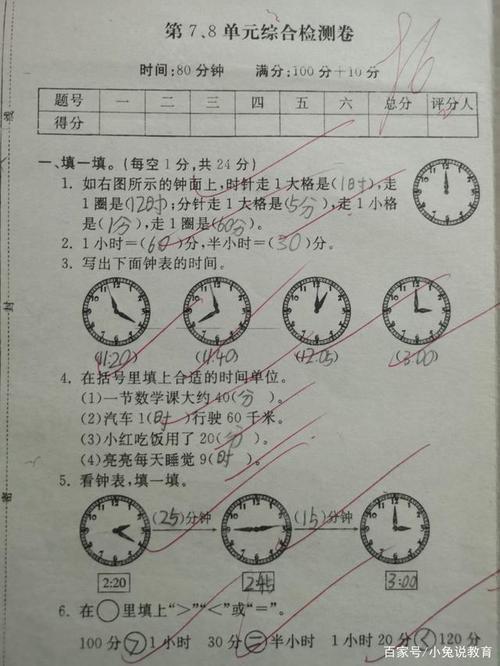 第7、8单元综合检测卷
时间:80分钟 满分:100分+10分
题号 一 二 三 四 五 六 总分 评分人
得分
一、填一填。(每空1分,共24分)
1. 如右图所示的钟面上,时针走1大格是(1时),走
1圈是(12时);分针走1大格是(5分),走1小格
是(1分),走1圈是(60分)。
2. 1小时=(60)分,半小时=(30)分。
3. 写出下面钟表的时间。
(11:20) (11:40) (12:05) (3:00)
4. 在括号里填上合适的时间单位。
(1)一节数学课大约40(分)。
(2)汽车1(时)行驶60千米。
(3)小红吃饭用了20(分)。
(4)亮亮每天睡觉9(时)。
5. 看钟表,填一填。
(25)分钟 (15)分钟
2:20 2:45 3:00
6. 在○里填上“>”“<”或“=”。
100分>1小时 30分=半小时 1小时20分<120分
百家号/小兔说教育